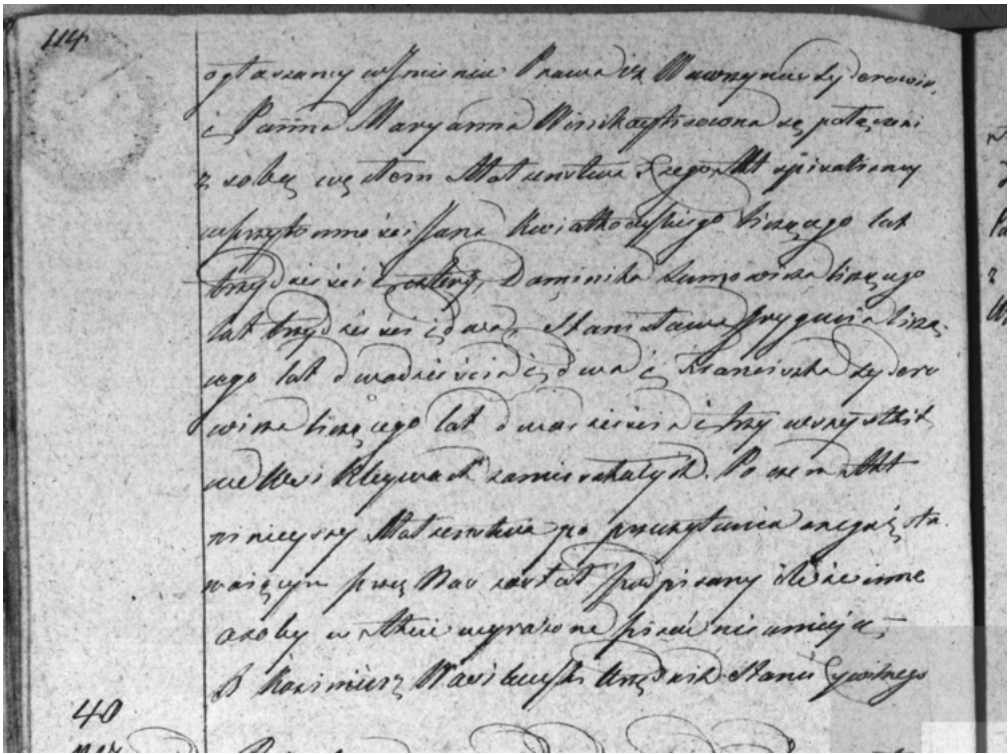 114
ogłaszamy w Jmieniu Prawa iż Wawrzyniec Zyderowic,
i Panna Maryanna są połączeni
z sobą węzłem Małżeństwa Czego Akt spisaliśmy
w przytomności Jana Kwiatkowskiego liczącego lat
trzydzieści i cztery, Dominika liczącego
lat trzydzieści i dwa, Stanisława liczą-
cego lat dwadzieścia i dwa i Franciszka Zydero
wicza liczącego lat dwadzieścia i trzy wszystkich
we Wsi Kleywach zamieszkałych. Po czem Akt
ninieyszy Małżeństwa po przeczytaniu onegoż sta
waiącym przez Nas został podpisany iż inne
osoby w Akcie wyrażone pisać nieumieją,
X Kazimierz Urzędnik Stanu Cywilnego
40